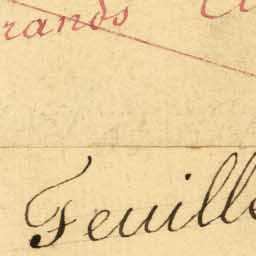 rands
Feuille